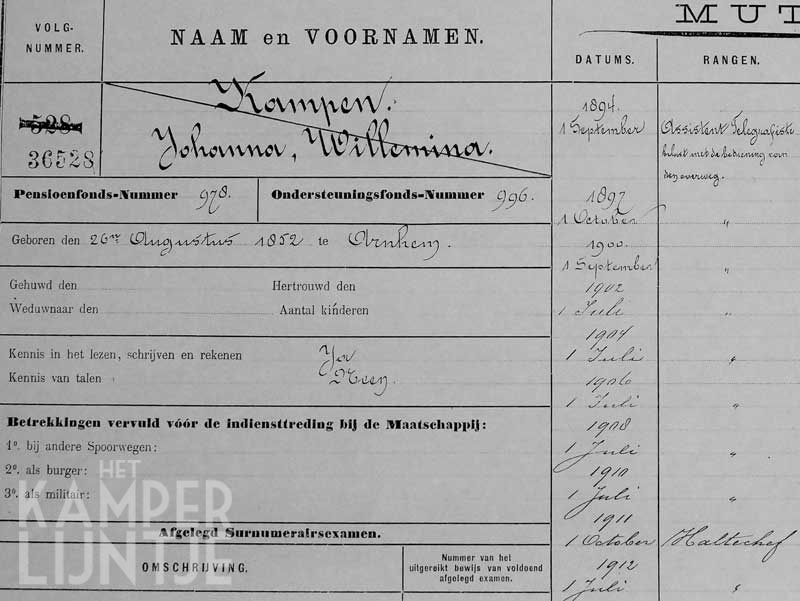 VOLG-
NUMMER.
NAAM en VOORNAMEN.
MUT
DATUMS.
RANGEN.
528
36528
Kampen.
Johanna, Willemina.
Pensioenfonds-Nummer 978.
Ondersteuningsfonds-Nummer 996.
Geboren den 26en Augustus 1852 te Arnhem.
Gehuwd den
Hertrouwd den
Weduwnaar den
Aantal kinderen
Kennis in het lezen, schrijven en rekenen Ja
Kennis van talen Neen.
Betrekkingen vervuld vóór de indiensttreding bij de Maatschappij:
1o. bij andere Spoorwegen:
2o. als burger:
3o. als militair:
Afgelegd Surnumerairsexamen.
OMSCHRIJVING.
Nummer van het
uitgereikt bewijs van voldoend
afgelegd examen.
1894.
1 September Assistent Telegrafiste
belast met de bediening van
den overweg.
1897
1 October "
1900.
1 September "
1902
1 Juli "
1904
1 Juli "
1906
1 Juli "
1908
1 Juli "
1910
1 Juli "
1911
1 October Haltechef
1912
1 Juli "
HET
KAMPER
LIJNTJE